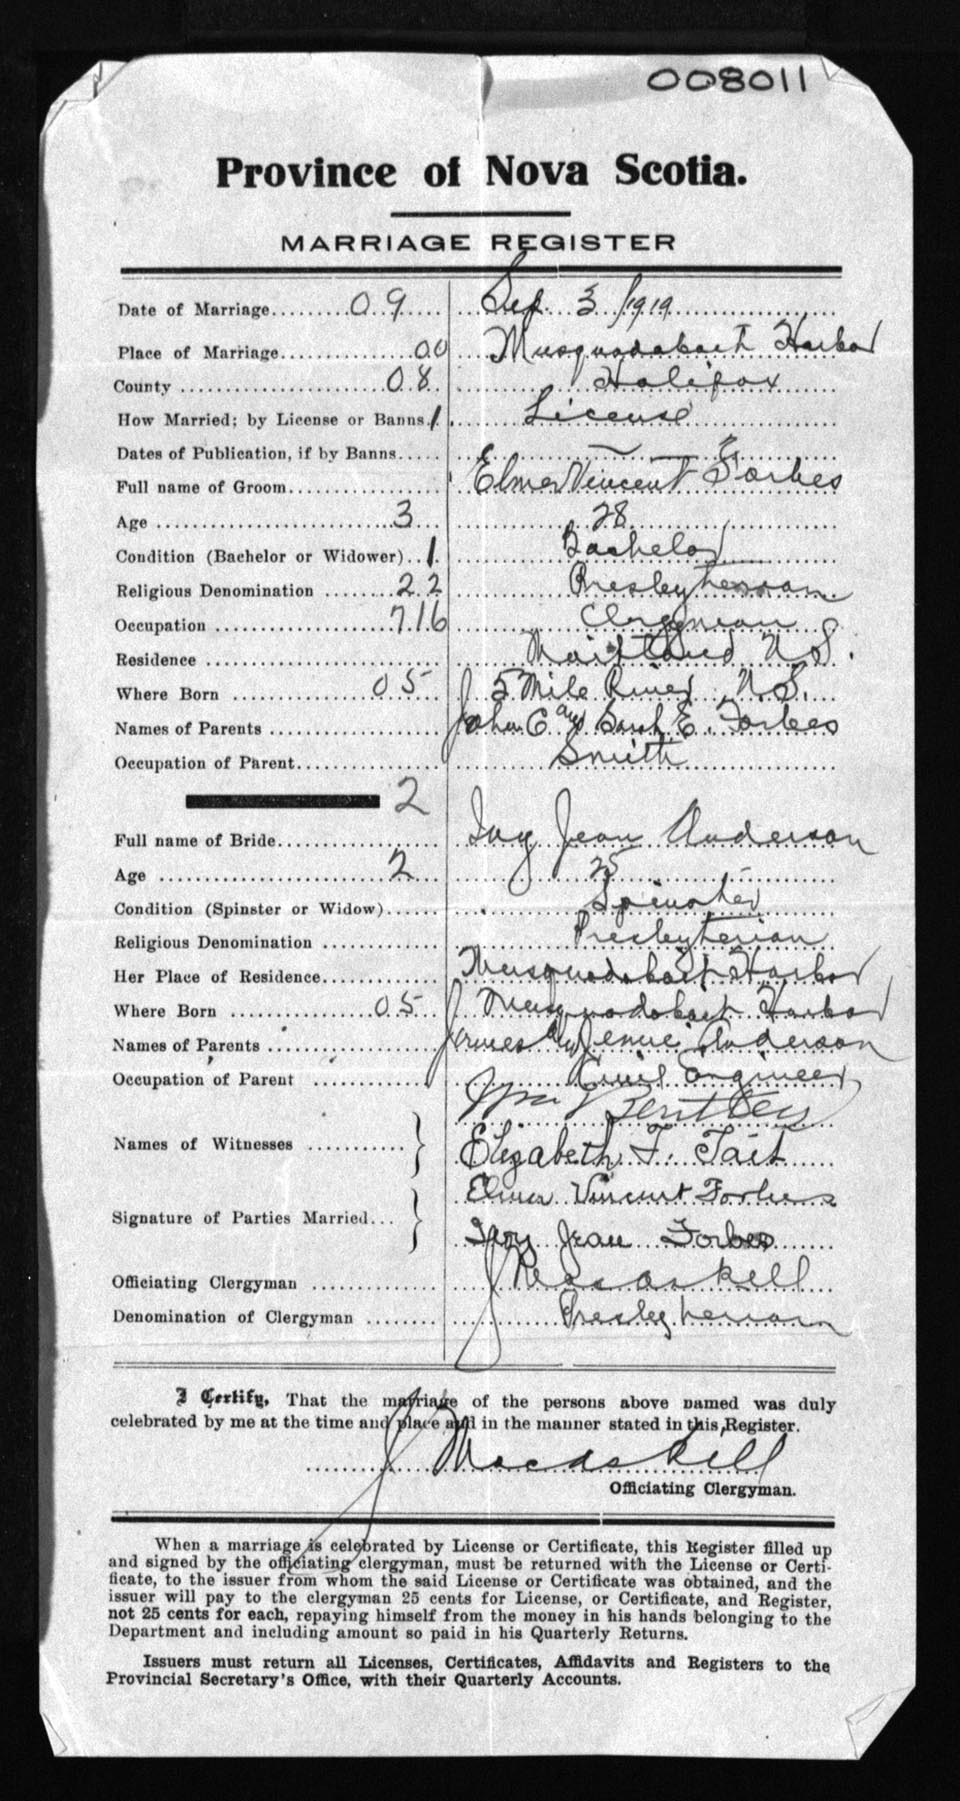 008011
Province of Nova Scotia.
MARRIAGE REGISTER
Date of Marriage 09 Sep. 3 / 1919
Place of Marriage 00 Musquodoboit Harbor
County 08 Halifax
How Married; by License or Banns 1 License
Dates of Publication, if by Banns —
Full name of Groom Elmer Vincent Forbes
Age 3 28
Condition (Bachelor or Widower) 1 Bachelor
Religious Denomination 22 Presbyterian
Occupation 716 Clergyman
Residence Maitland N.S.
Where Born 05 5 Mile River N.S.
Names of Parents John C and Sarah E. Forbes
Occupation of Parent Smith
2
Full name of Bride Ivy Jean Anderson
Age 2 25
Condition (Spinster or Widow) Spinster
Religious Denomination Presbyterian
Her Place of Residence Musquodoboit Harbor
Where Born 05 Musquodoboit Harbor
Names of Parents James and Jennie Anderson
Occupation of Parent Civil Engineer
Bentley
Names of Witnesses Elizabeth F. Tait
Elmer Vincent Forbes
Signature of Parties Married Ivy Jean Forbes
Officiating Clergyman J Macaskell
Denomination of Clergyman Presbyterian
I Certify, That the marriage of the persons above named was duly
celebrated by me at the time and place and in the manner stated in this Register.
J Macaskell
Officiating Clergyman.
When a marriage is celebrated by License or Certificate, this Register filled up
and signed by the officiating clergyman, must be returned with the License or Certi-
ficate, to the issuer from whom the said License or Certificate was obtained, and the
issuer will pay to the clergyman 25 cents for License, or Certificate, and Register,
not 25 cents for each, repaying himself from the money in his hands belonging to the
Department and including amount so paid in his Quarterly Returns.
Issuers must return all Licenses, Certificates, Affidavits and Registers to the
Provincial Secretary's Office, with their Quarterly Accounts.